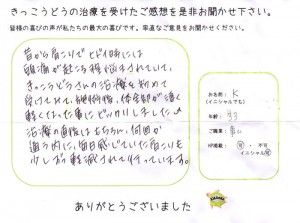 きっこうどうの治療を受けたご感想を是非お聞かせ下さい。
皆様の喜びの声が私たちの最大の喜びです。率直なご意見をお聞かせください。
昔から肩こりで ヒドイ時には
頭痛が起こる程悩まされていて、
きっこうどうさんの治療を初めて
受けてみて、施術後、体全部が凄く
軽くなった事にビックリしました♪
治療の直後はもちろん、何回か
通う内に、毎日感じていた肩こりも
少しずつ軽減されて行っています。
お名前: K
(イニシャルでも)
年齢: 33
ご職業:
HP掲載: 可 ・ 不可
イニシャル可
ありがとうございました